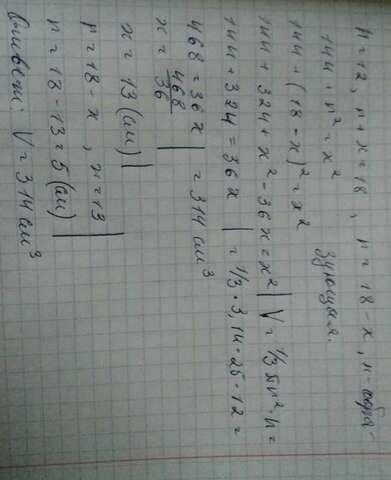 h=12, r+x=18, r=18-x, x-обра-
зующая.
144+r²=x²
144+(18-x)²=x²
144+324+x²-36x=x² | V=⅓πr²·h=
144+324=36x | =⅓·3,14·25·12=
468=36x | =314 см³
x=468/36
x=13 (см)
r=18-x, x=13
r=18-13=5(см)
Ответ: V=314 см³